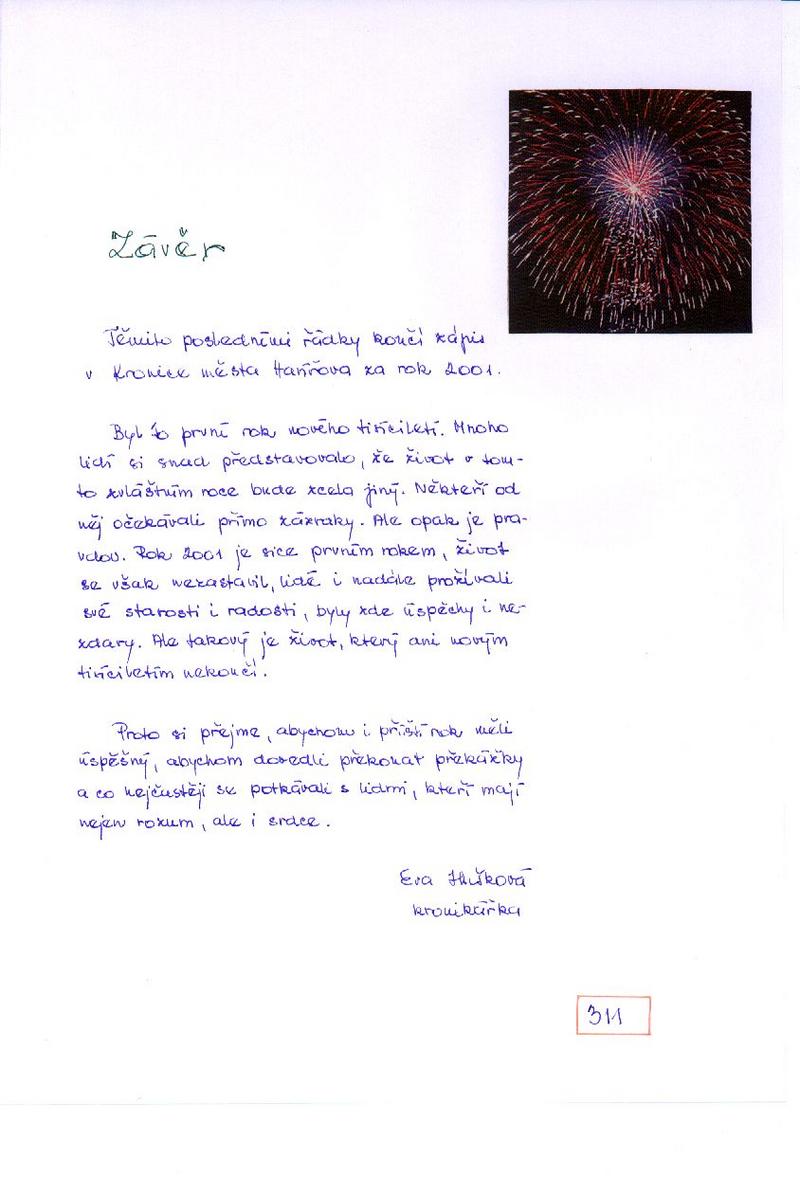 Závěr
Těmito posledními řádky končí zápis
v Kronice města Haňova za rok 2001.
Byl to první rok nového tisíciletí. Mnoho
lidí si snad představovalo, že život v tom-
to zvláštním roce bude zcela jiný. Někteří od
něj očekávali přímo zázraky. Ale opak je pra-
vdou. Rok 2001 je sice prvním rokem, život
se však nezastavil, lidé i nadále prožívali
své starosti i radosti, byly zde úspěchy i ne-
zdary. Ale takový je život, který ani novým
tisíciletím nekončí.
Proto si přejme, abychom i příští rok měli
úspěšný, abychom dovedli překonat překážky
a co nejčastěji se potkávali s lidmi, kteří mají
nejen rozum, ale i srdce.
Eva
kronikářka
311